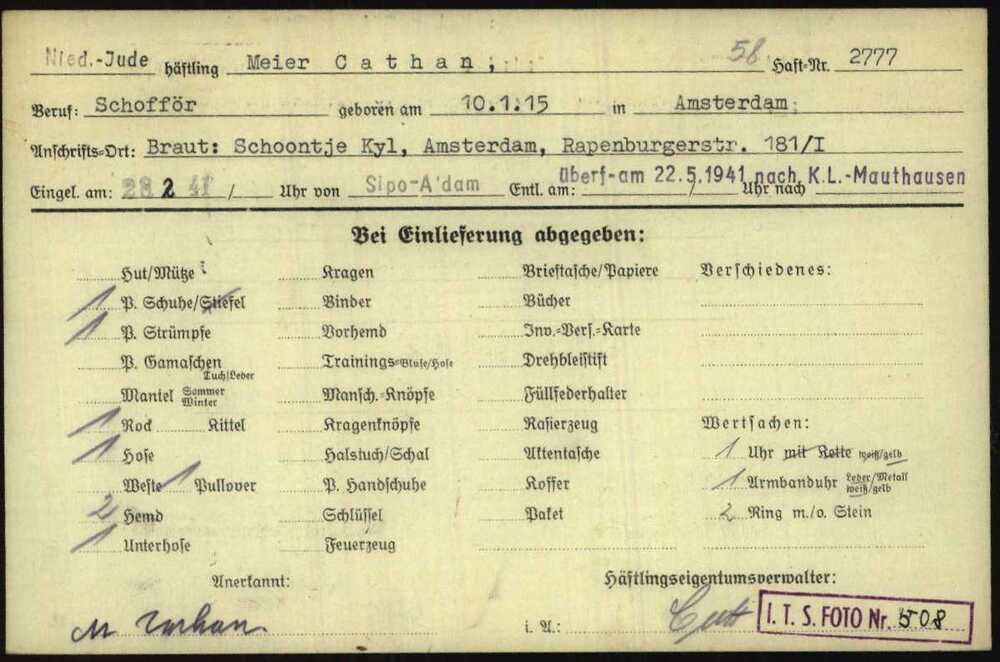 Nied.-Jude häftling Meier Cathan, 58 Haft-Nr. 2777
Beruf: Schofför geboren am 10.1.15 in Amsterdam
Anschrifts-Ort: Braut: Schoontje Kyl, Amsterdam, Rapenburgerstr. 181/I
Eingel. am: 28 2 41 / Uhr von Sipo-A'dam Entl. am: überf. am 22.5.1941 nach K.L.-Mauthausen / Uhr nach
Bei Einlieferung abgegeben:
Hut/Mütze Kragen Brieftasche/Papiere Verschiedenes:
1 P. Schuhe/Stiefel Binder Bücher
1 P. Strümpfe Vorhemd Inv.-Vers.-Karte
P. Gamaschen Tuch/Leder Trainings-Bluse/Hose Drehbleistift
Mantel Sommer Winter Mansch.-Knöpfe Füllfederhalter
1 Rock Kittel Kragenknöpfe Rasierzeug Wertsachen:
1 Hose Halstuch/Schal Aktentasche 1 Uhr mit Kette weiß/gelb
Weste 1 Pullover P. Handschuhe Koffer 1 Armbanduhr Leder/Metall weiß/gelb
2 Hemd Schlüssel Paket 2 Ring m./o. Stein
1 Unterhose Feuerzeug
Anerkannt: Häftlingseigentumsverwalter:
M i. A.:
I. T. S. FOTO Nr. 508